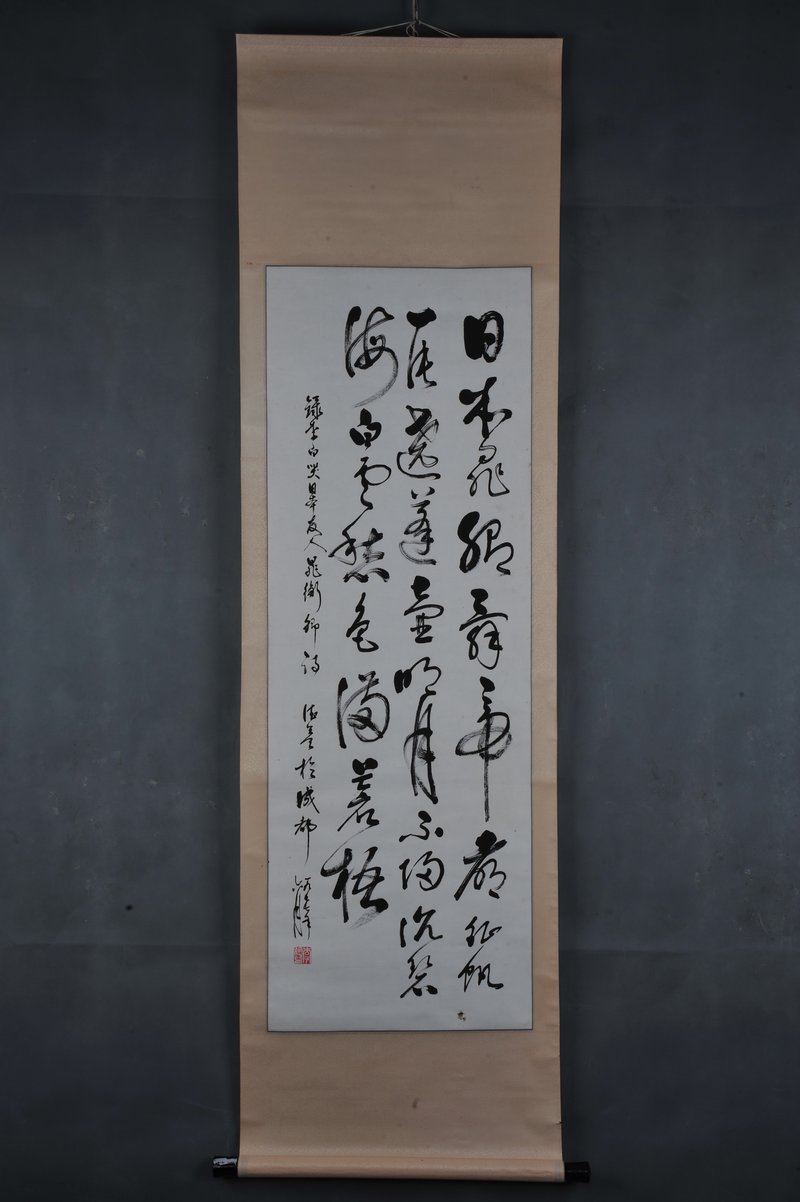 日本晁卿辞帝都征帆
一片遶蓬壶明月不归沉碧
海白云愁色满苍梧
录李白哭日本友人晁衡卿诗 於成都
六月